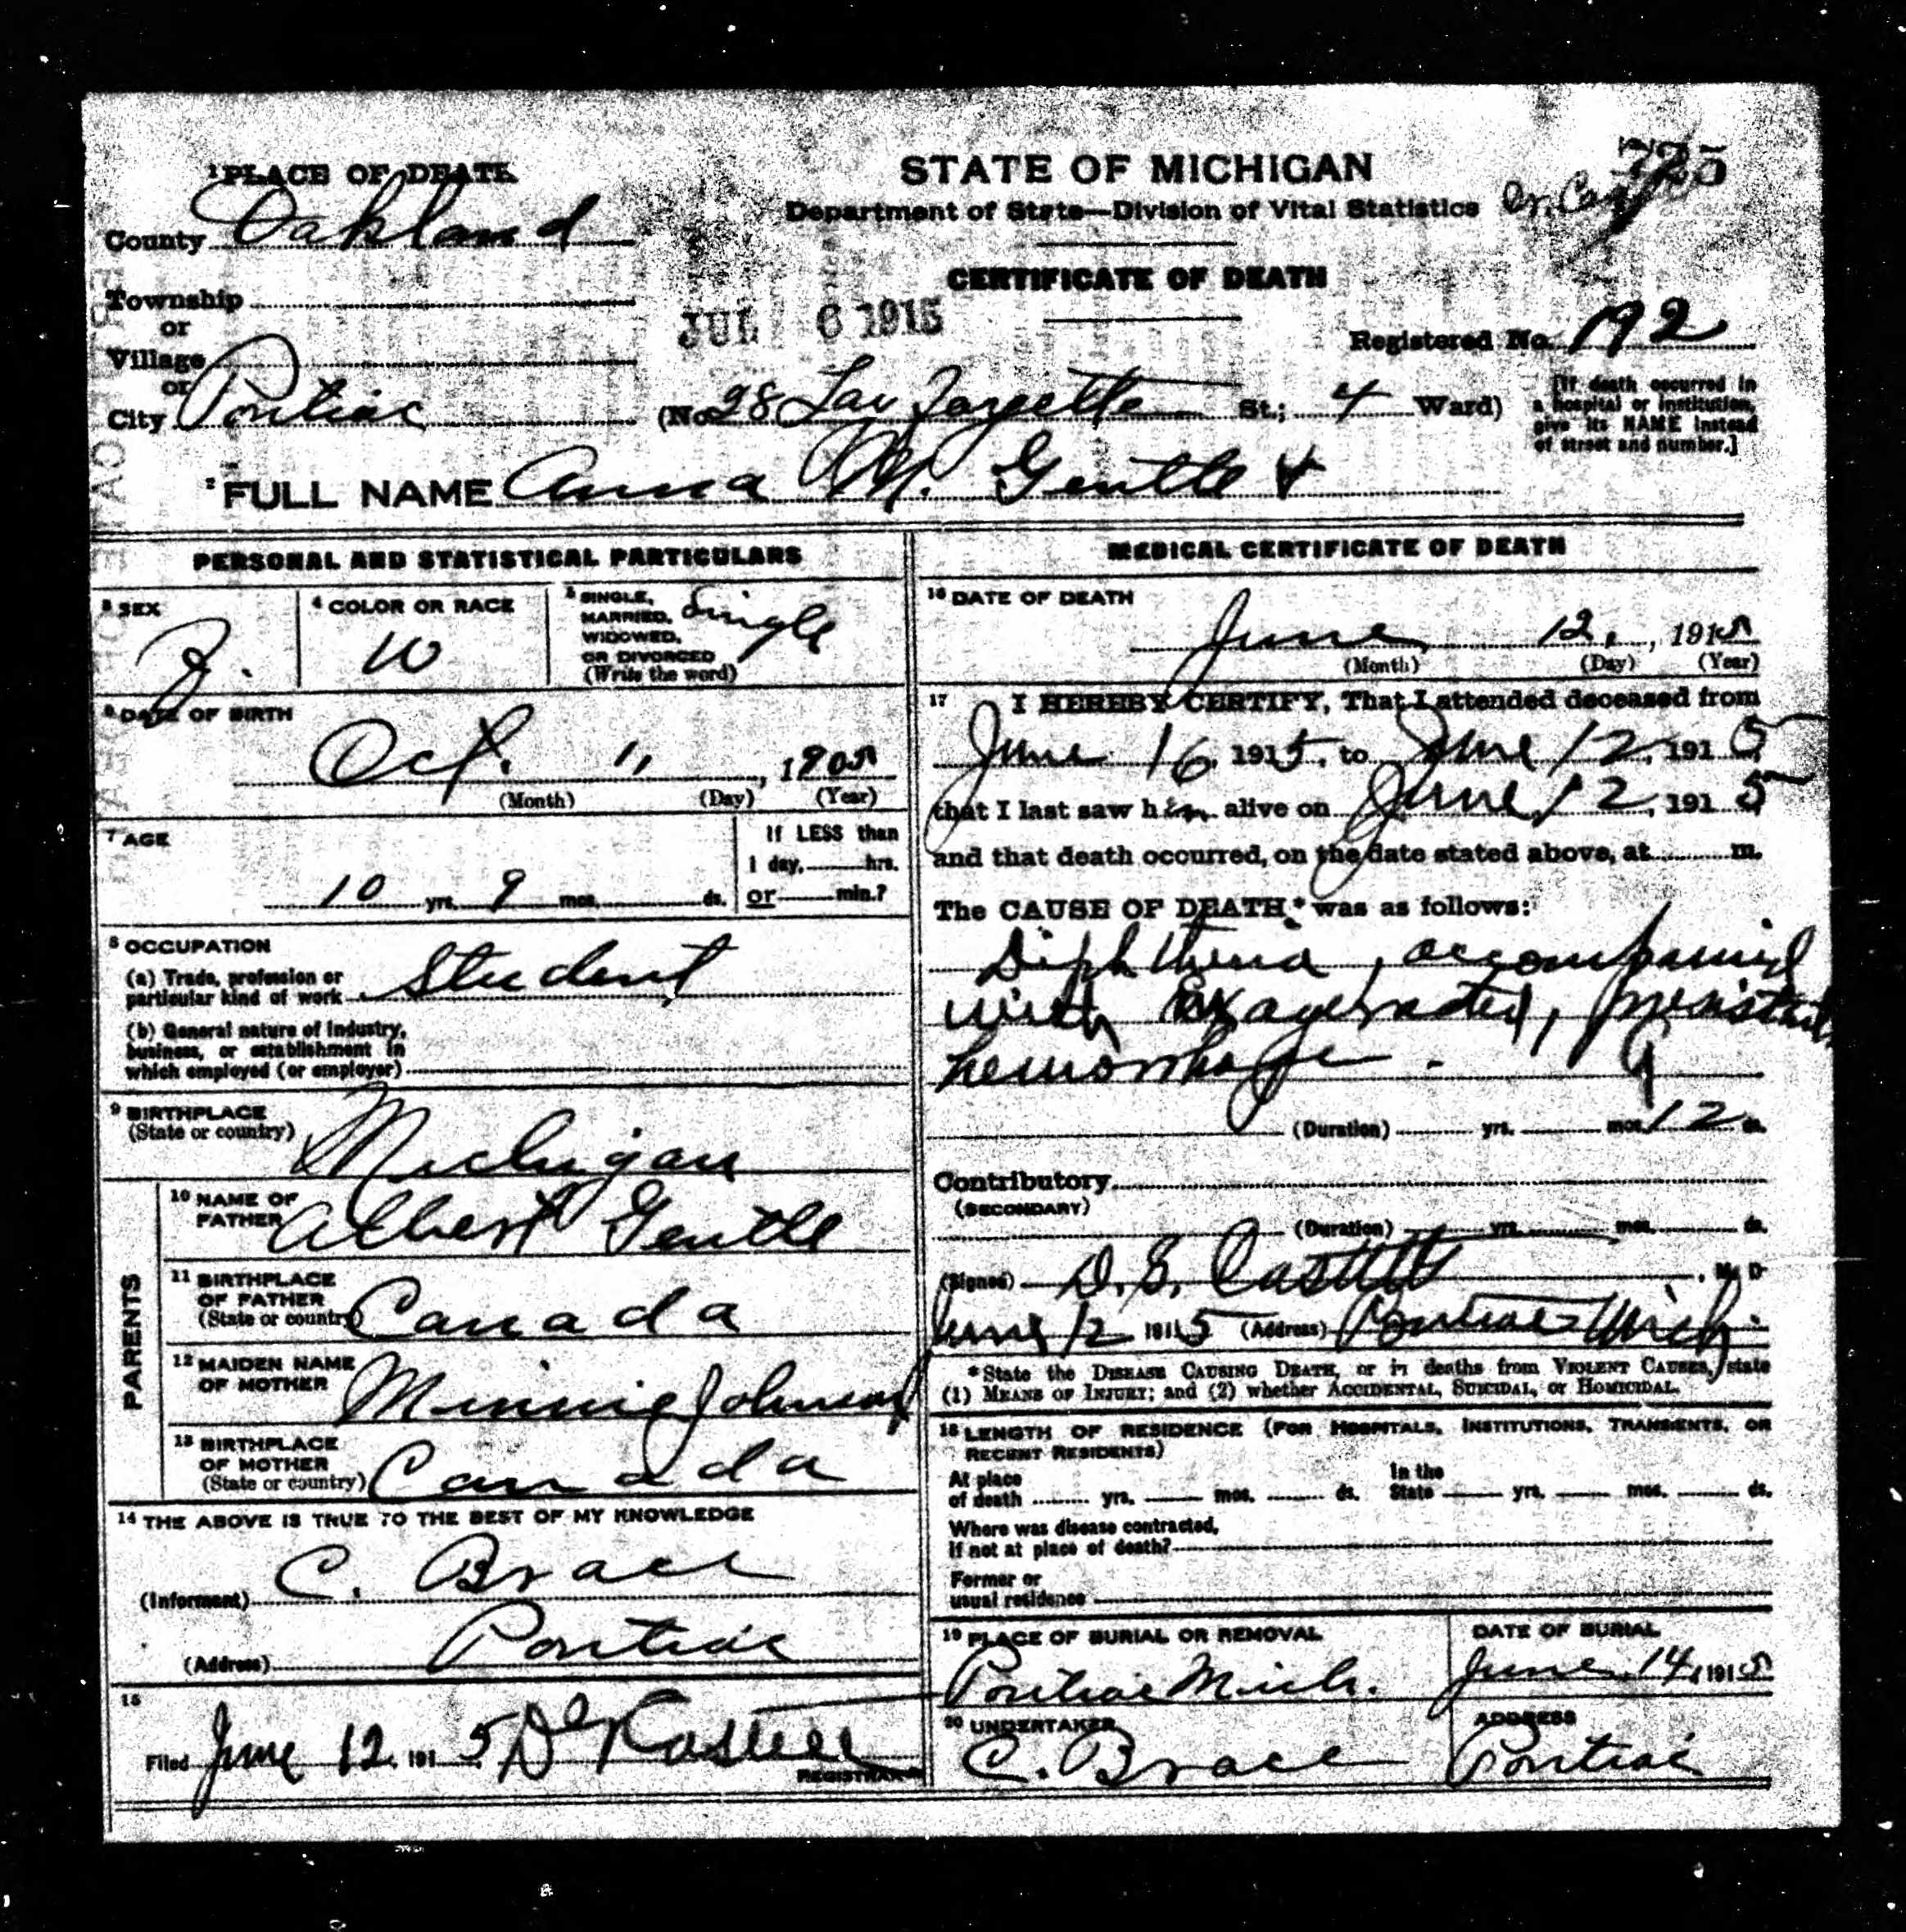 725
1 PLACE OF DEATH
STATE OF MICHIGAN
Department of State—Division of Vital Statistics
County Oakland
CERTIFICATE OF DEATH
Township
or
JUL 6 1915
Village
Registered No. 192
or
City Pontiac (No 98 St.; 4 Ward)
[If death occurred in
a hospital or institution,
give its NAME instead
of street and number.]
2 FULL NAME Anna M. Gentle
PERSONAL AND STATISTICAL PARTICULARS
3 SEX
F.
4 COLOR OR RACE
W
5 SINGLE,
MARRIED,
WIDOWED,
OR DIVORCED
(Write the word)
Single
6 DATE OF BIRTH
Oct. " , 1905
(Month) (Day) (Year)
7 AGE
10 yrs. 9 mos. ds.
If LESS than
1 day, hrs.
or min.?
8 OCCUPATION
(a) Trade, profession or
particular kind of work Student
(b) General nature of industry,
business, or establishment in
which employed (or employer)
9 BIRTHPLACE
(State or country)
Michigan
PARENTS
10 NAME OF
FATHER Albert Gentle
11 BIRTHPLACE
OF FATHER
(State or country) Canada
12 MAIDEN NAME
OF MOTHER Minnie Johnson
13 BIRTHPLACE
OF MOTHER
(State or country) Canada
14 THE ABOVE IS TRUE TO THE BEST OF MY KNOWLEDGE
(Informant) C. Brace
(Address) Pontiac
15
Filed June 12, 1915
REGISTRAR
MEDICAL CERTIFICATE OF DEATH
16 DATE OF DEATH
June 12, , 1915
(Month) (Day) (Year)
17 I HEREBY CERTIFY, That I attended deceased from
June 16, 1915, to June 12, 1915
that I last saw him alive on June 12, 1915
and that death occurred, on the date stated above, at m.
The CAUSE OF DEATH* was as follows:
Diphtheria, accompanied
with Exagerated, persistent
hemorrhage.
(Duration) yrs. mos. 12 ds.
Contributory
(SECONDARY)
(Duration) yrs. mos. ds.
(Signed) D. G. , M. D
June 12 1915 (Address) Pontiac Mich.
*State the DISEASE CAUSING DEATH, or in deaths from VIOLENT CAUSES, state
(1) MEANS OF INJURY; and (2) whether ACCIDENTAL, SUICIDAL, or HOMICIDAL.
18 LENGTH OF RESIDENCE (FOR HOSPITALS, INSTITUTIONS, TRANSIENTS, OR
RECENT RESIDENTS)
At place
of death yrs. mos. ds.
In the
State yrs. mos. ds.
Where was disease contracted,
if not at place of death?
Former or
usual residence
19 PLACE OF BURIAL OR REMOVAL
Pontiac Mich.
DATE OF BURIAL
June 14, 1915
20 UNDERTAKER
C. Brace
ADDRESS
Pontiac